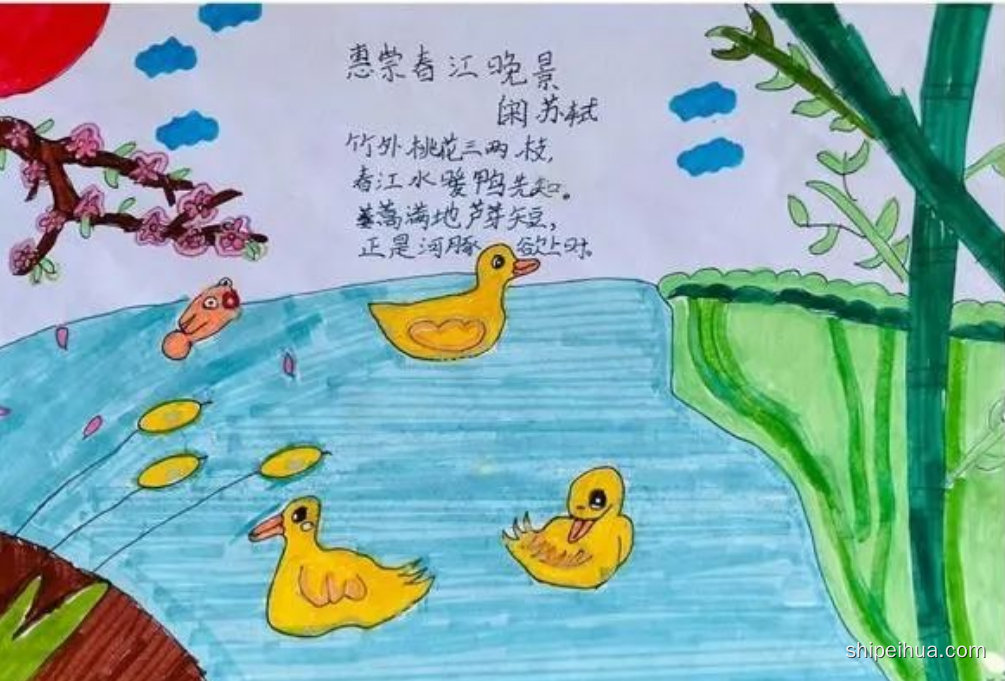 惠崇春江晚景
闲苏轼
竹外桃花三两枝,
春江水暖鸭先知。
蒌蒿满地芦芽短,
正是河豚欲上时。
shipeihua.com